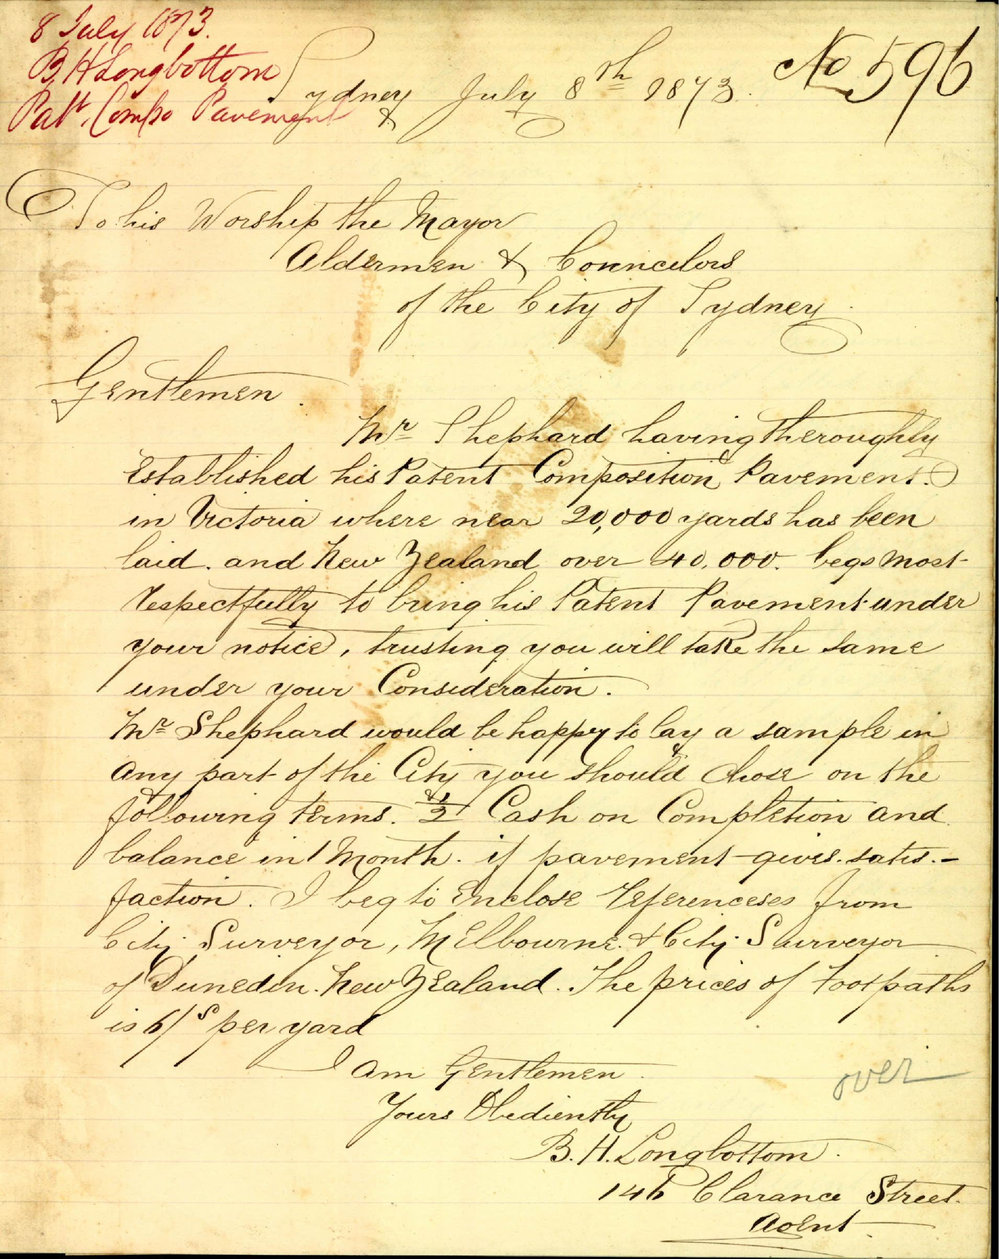 8 July 1873.
B H Longbottom
Pat<sup>t</sup>. Compo Pavement
No 596
Sydney July 8th 1873.
To his Worship the Mayor
Aldermen & Councelors
of the City of Sydney.
Gentlemen.
Mr Shephard having theroughly
Established his Patent Composition Pavement.
in Victoria where near 20,000 yards has been
laid. and New Zealand over 40,000. begs most
respectfully to bring his Patent Pavement under
your notice, trusting you will take the same
under your Consideration.
Mr Shephard would be happy to lay a sample in
any part of the City you should chose on the
following terms. 1/2 Cash on Completion and
balance in 1 Month. if pavement gives satis-
faction. I beg to Enclose referenceses from
City Surveyor, Melbourne. & City Surveyor
of Dunedin. New Zealand. The prices of Footpaths
is 6/s per yard
I am Gentlemen.
Yours Obediently
B. H. Longbottom.
146 Clarance Street.
Agent
over